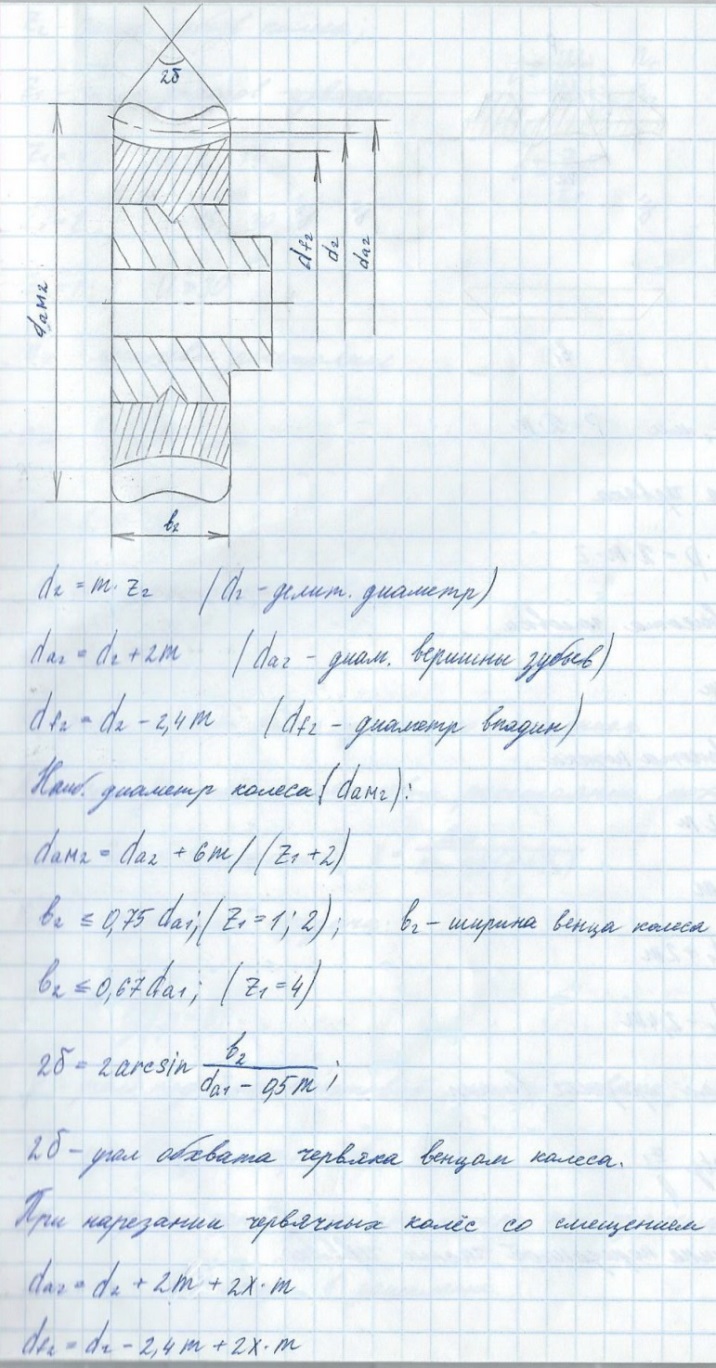 2δ
dам2
df2
d2
da2
в2
d2 = m · z2 (d2 – делит. диаметр)
da2 = d2 + 2m (da2 – диам. вершины зубьев)
df2 = d2 – 2,4m (df2 – диаметр впадин)
Наиб. диаметр колеса (dам2):
dам2 = da2 + 6m / (z1 + 2)
в2 ≤ 0,75 da1; (z1 = 1; 2); в2 – ширина венца колеса
в2 ≤ 0,67 da1; (z1 = 4)
2δ = 2arcsin в2 / (da1 – 0,5m);
2δ – угол обхвата червяка венцом колеса.
При нарезании червячных колёс со смещением
da2 = d2 + 2m + 2x · m
df2 = d2 – 2,4m + 2x · m